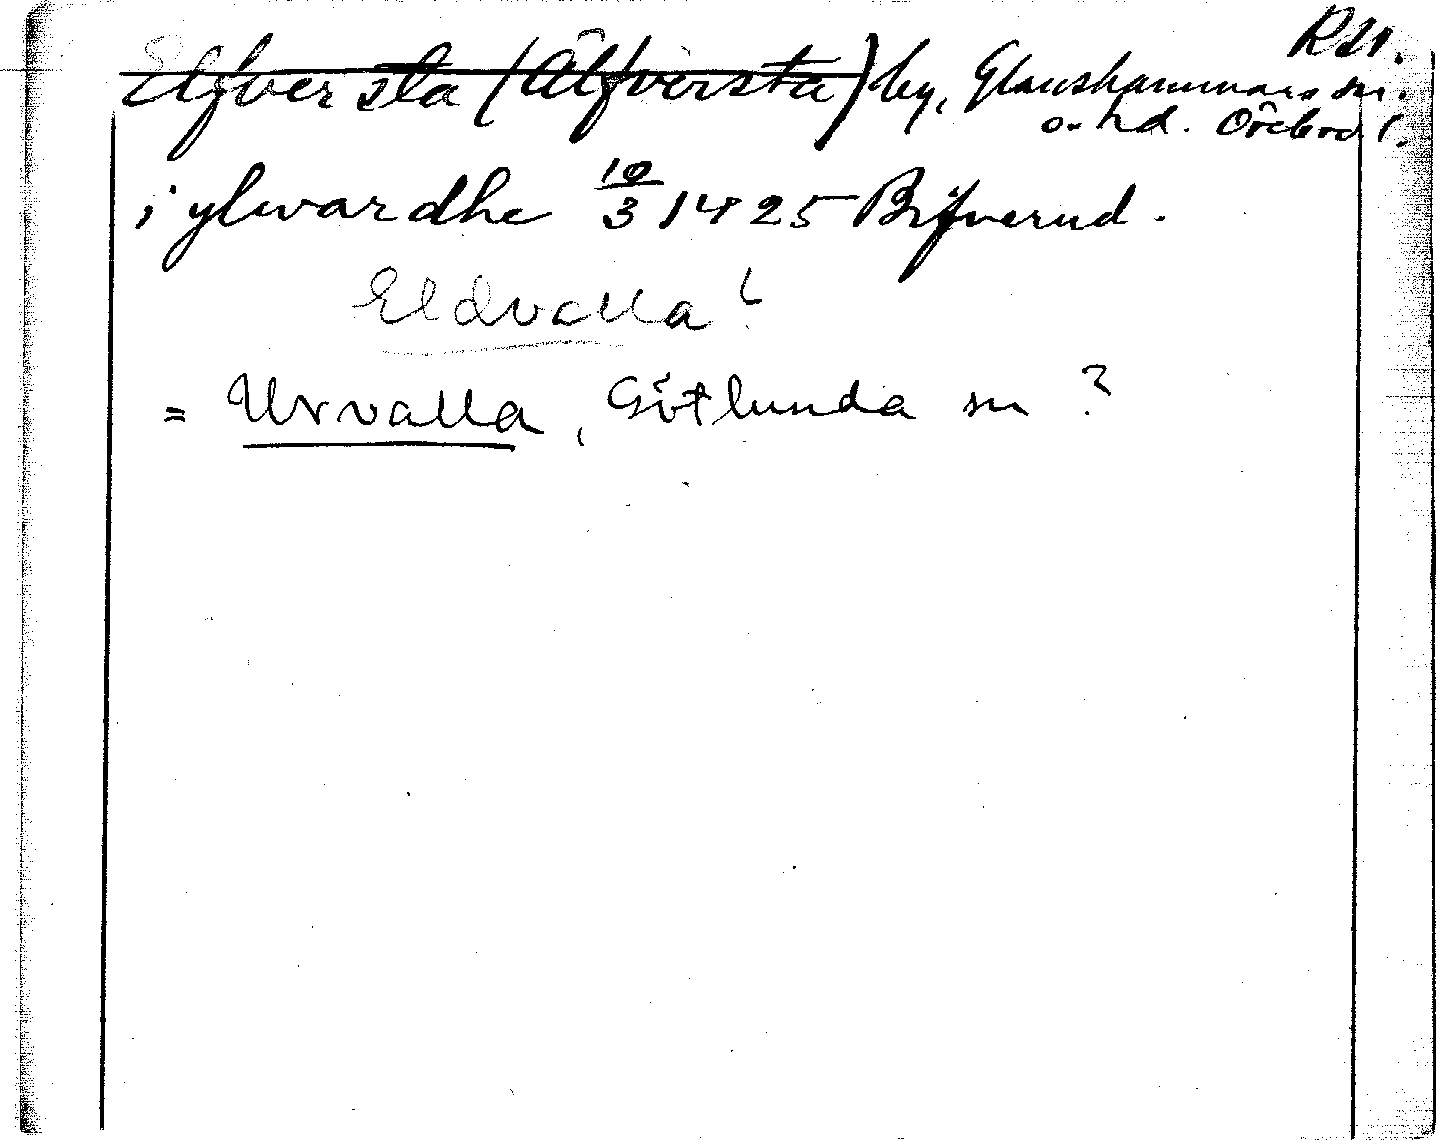 Elfversta (Älfversta) by, Glanshammars sn.
o. hd. Örebro l.
i ylwardhe 10/3 1425 Brefverud.
Eldvalla?
= Urvalla, Götlunda sn ?